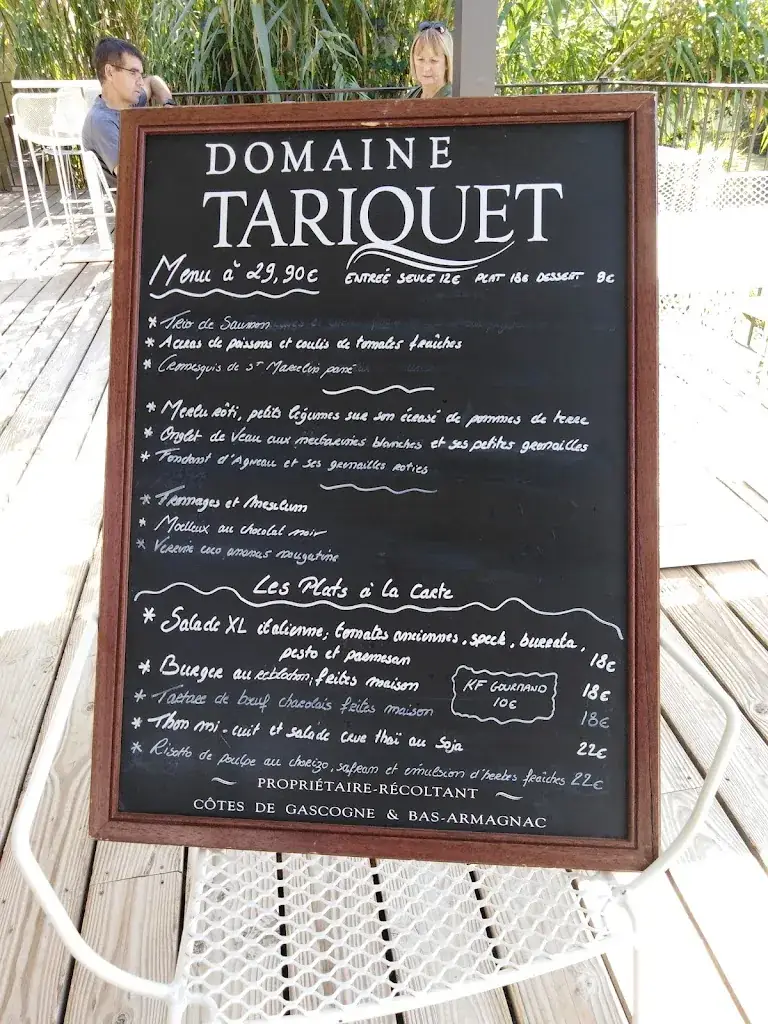 DOMAINE
TARIQUET
Menu à 29,90€ ENTREÉ SEULE 12€ PLAT 18€ DESSERT 9€
* Trio de Saumon
* Accras de poissons et coulis de tomates fraîches
* Cromesquis de ST Marcelin pané
* Merlu rôti, petits légumes sur son écrasé de pommes de terre
* Onglet de Veau aux nectarines blanches et ses petites grenailles
* Fondant d'Agneau et ses grenailles roties
* Fromages et Mesclum
* Moelleux au chocolat noir
* Verrine coco ananas nougatine
Les Plats à la Carte
* Salade XL italienne, tomates anciennes, speck, burrata,
pesto et parmesan 18€
* Burger au reblochon, frites maison 18€
KF GOURMAND
10€
* Tartare de bœuf charolais frites maison 18€
* Thon mi-cuit et salade crue thaï au soja 22€
* Risotto de poulpe au chorizo, safran et émulsion d'herbes fraîches 22€
PROPRIÉTAIRE-RÉCOLTANT
CÔTES DE GASCOGNE & BAS-ARMAGNAC